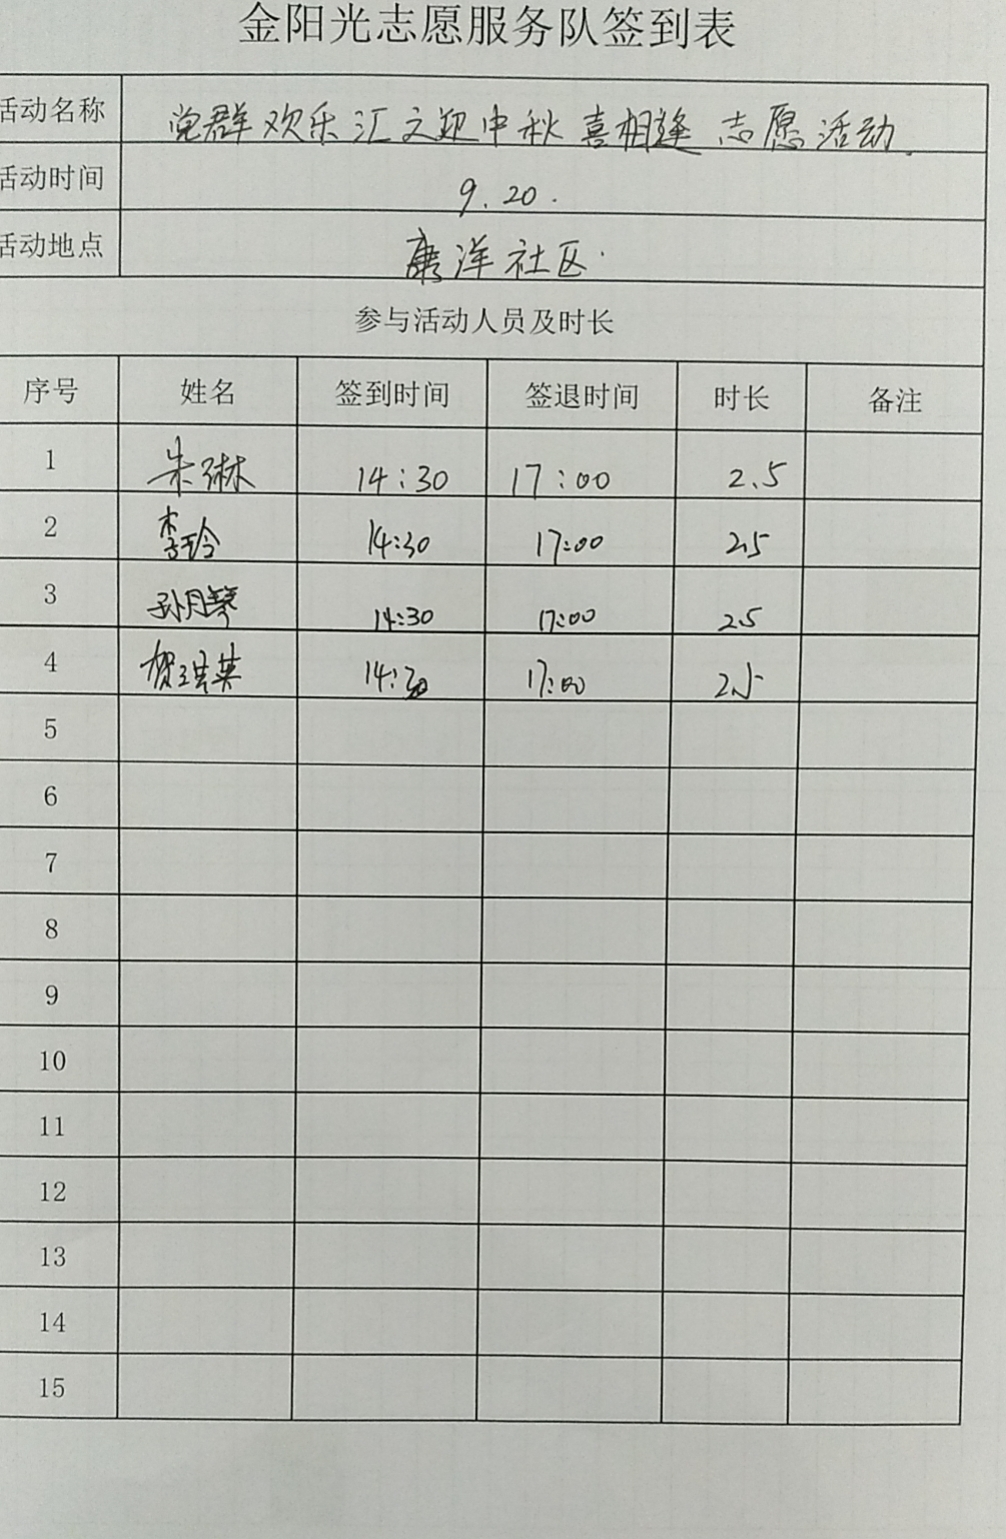 金阳光志愿服务队签到表
活动名称 党群欢乐汇之迎中秋喜相逢志愿活动.
活动时间 9.20.
活动地点 康洋社区.
参与活动人员及时长
序号 姓名 签到时间 签退时间 时长 备注
1 朱琳 14:30 17:00 2.5
2 李玲 14:30 17:00 2.5
3 孙月琴 14:30 17:00 2.5
4 贺 英 14:30 17:00 2.5
5
6
7
8
9
10
11
12
13
14
15